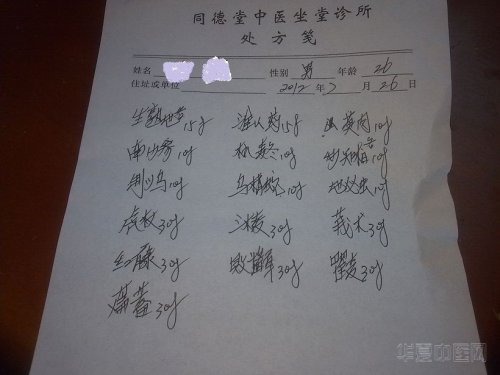 同德堂中医坐堂诊所
处方笺
姓名 性别 男 年龄 26
住址或单位 2012年7月26日
生熟地各15g 淮山药15g 山萸肉10g
南沙参10g 10g 10g
制川乌10g 乌梢蛇10g 地必虫10g
虎杖30g 三棱30g 莪术30g
红藤30g 败酱草30g 瞿麦30g
萹蓄30g
华夏中医网